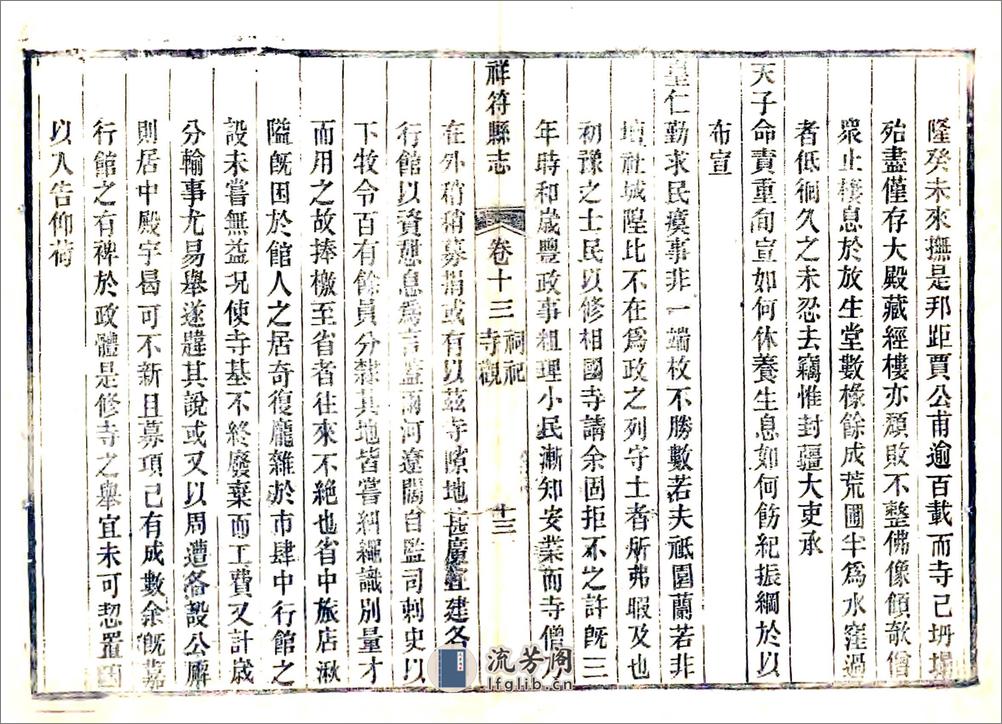 隆癸未來撫是邦距賈公甫逾百載而寺已坍塌
殆盡僅存大殿藏經樓亦頹敗不整佛像傾欹僧
眾止棲息於放生堂數椽餘成荒圃半為水窪過
者低徊久之未忍去竊惟封疆大吏承
天子命責重旬宣如何休養生息如何飭紀振綱於以
布宣
皇仁勤求民瘼事非一端枚不勝數若夫祇園蘭若非
壇社城隍比不在為政之列守土者所弗暇及也
初豫之士民以修相國寺請余固拒不之許既三
年時和歲豐政事粗理小民漸知安業而寺僧
祥符縣志
卷十三
祠祀
寺觀
十三
在外稍稍募捐或有以茲寺隙地甚廣宜建各
行館以資憩息為言蓋河遼闊自監司刺史以
下牧令百有餘員分隸其地皆嘗糾繩識別量才
而用之故捧檄至省者往來不絕也省中旅店湫
隘既困於館人之居奇復龐雜於市肆中行館之
設未嘗無益況使寺基不終廢棄而工費又計歲
分輸事尤易舉遂韙其說或又以周遭各設公廨
則居中殿宇曷可不新且募項已有成數余既嘉
行館之有裨於政體是修寺之舉宜未可恝置
以入告仰荷
流芳閣
lfglib.cn